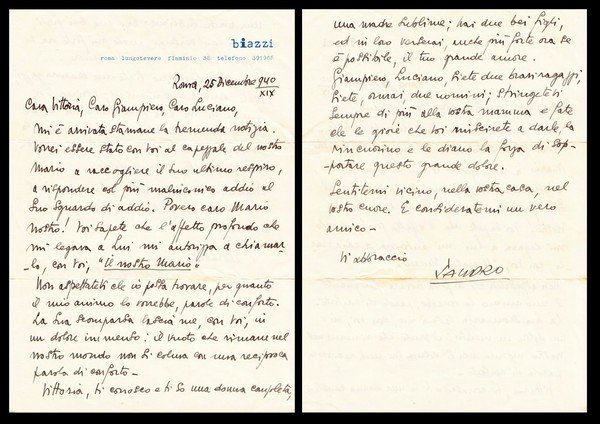 biazzi
roma lungotevere flaminio 38 telefono 391968
Roma, 25 Dicembre 940
XIX
Cara Vittoria, Caro Giampiero, Caro Luciano,
mi è arrivata stamane la tremenda notizia.
Vorrei essere stato con voi al capezzale del nostro
Mario a raccogliere il suo ultimo respiro,
a rispondere col più malinconico addio al
suo sguardo di addio. Povero caro Mario
nostro! Voi sapete che l'affetto profondo che
mi legava a Lui mi autorizza a chiamar-
lo, con voi, "Il nostro Mario".
Non aspettatevi che io possa trovare, per quanto
il mio animo lo vorrebbe, parole di conforto.
La sua scomparsa lascia me, con voi, in
un dolore immenso: il vuoto che rimane nel
nostro mondo non si colma con una reciproca
parola di conforto -
Vittoria, ti conosco e ti so una donna completa,
una madre sublime; hai due bei figli,
ed in loro verserai, anche più forte ora se
è possibile, il tuo grande amore.
Giampiero, Luciano, siete due bravi ragazzi,
siete, ormai, due uomini; stringetevi
sempre di più alla vostra mamma e fate
che le gioie che voi riuscirete a darle, la
rincuorino e le diano la forza di sop-
portare questo grande dolore.
Sentitemi vicino, nella vostra casa, nel
vostro cuore. E consideratemi un vero
amico -
Vi abbraccio
Sandro